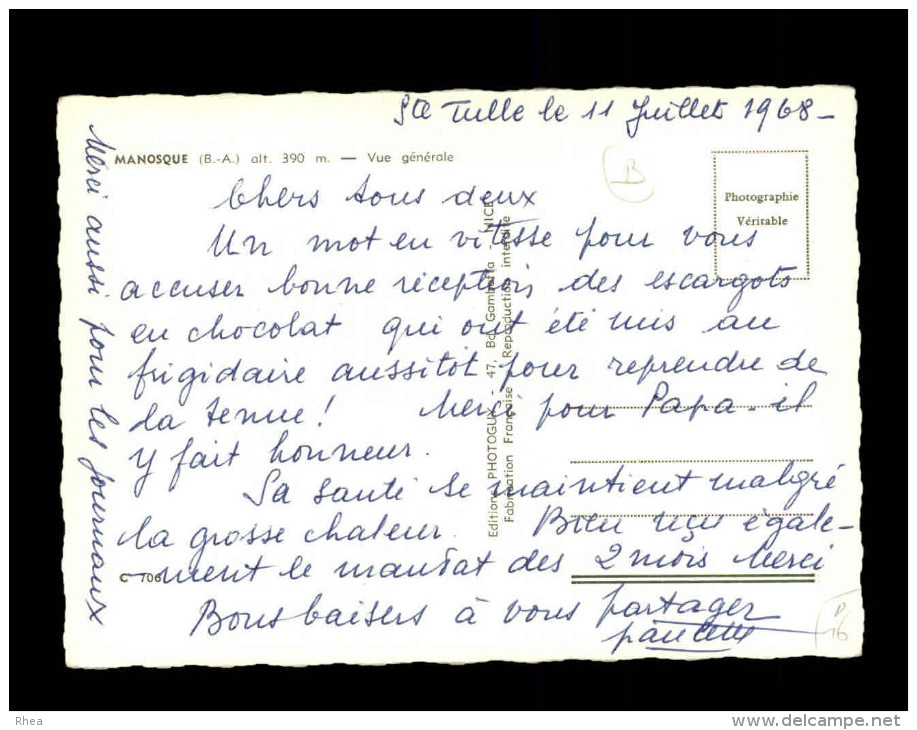 Ste Tulle le 11 Juillet 1968 -
MANOSQUE (B.-A.) alt. 390 m. — Vue générale
B
Photographie
Véritable
Chers tous deux
Un mot en vitesse pour vous
accuser bonne réception des escargots
en chocolat qui ont été mis au
frigidaire aussitôt pour reprendre de
la tenue! Merci pour Papa - il
y fait honneur.
Sa santé se maintient malgré
la grosse chaleur. Bien reçu égale-
-ment le mandat des 2 mois Merci
Bons baisers à vous partager
Merci aussi pour les journaux
Editions PHOTOGUY - 47, Bd Gambetta - NICE
Fabrication Française Reproduction interdite
C 706
16
Rhea
delcampe.net